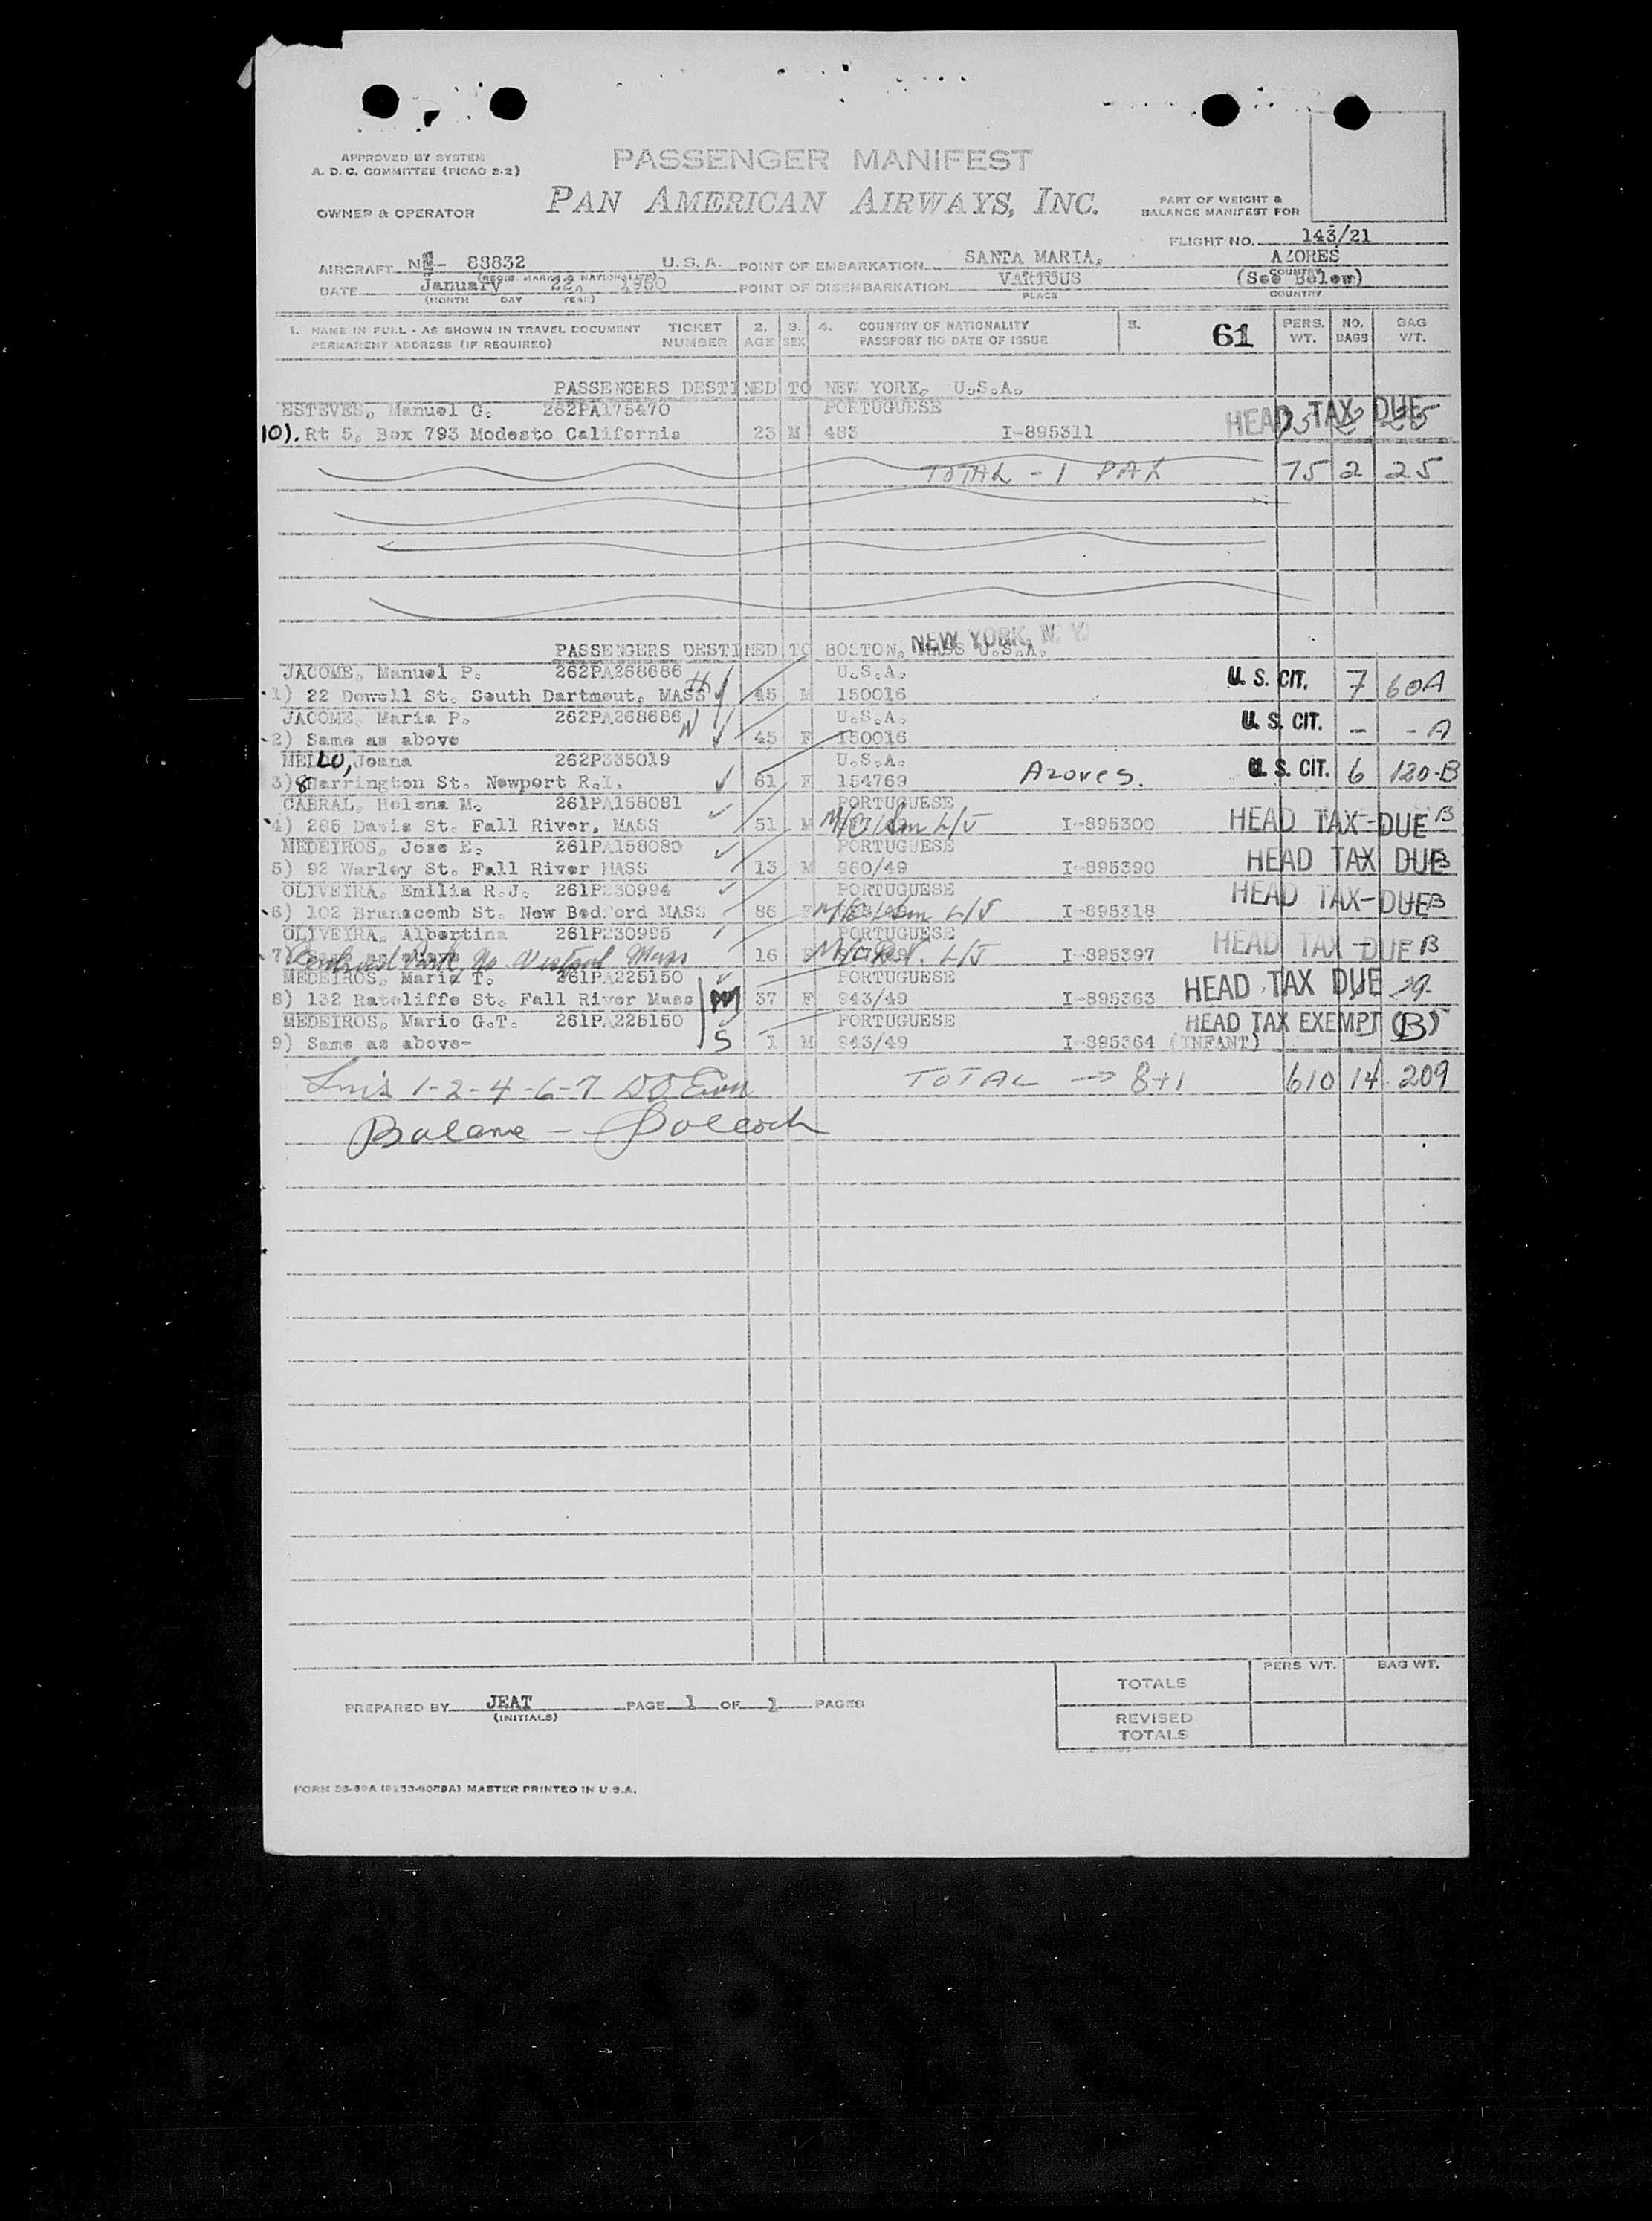 APPROVED BY SYSTEM
A. D. C. COMMITTEE (PICAO 2-2)
PASSENGER MANIFEST
OWNER & OPERATOR
PAN AMERICAN AIRWAYS, INC.
PART OF WEIGHT &
BALANCE MANIFEST FOR
FLIGHT NO. 143/21
AIRCRAFT N 88832 U.S.A. POINT OF EMBARKATION SANTA MARIA, AZORES
(REGIS MARKS & NATIONALITY) COUNTRY
DATE January 22, 1950 POINT OF DISEMBARKATION VARIOUS (See Below)
(MONTH DAY YEAR) PLACE COUNTRY
1. NAME IN FULL - AS SHOWN IN TRAVEL DOCUMENT TICKET 2. 3. 4. COUNTRY OF NATIONALITY 5. 61 PERS. NO. BAG
PERMANENT ADDRESS (IF REQUIRED) NUMBER AGE SEX PASSPORT NO DATE OF ISSUE WT. BAGS WT.
PASSENGERS DESTINED TO NEW YORK, U.S.A.
ESTEVES, Manuel G. 262PA175470 PORTUGUESE HEAD TAX DUE
10). Rt 5, Box 793 Modesto California 23 M 483 I-895311
TOTAL - 1 PAX 75 2 25
NEW YORK, N. Y.
PASSENGERS DESTINED TO BOSTON, MASS U.S.A.
JACOME, Manuel P. 262PA268686 U.S.A. U. S. CIT. 7 60A
1) 22 Dowell St. South Dartmout, MASS 45 M 150016
JACOME, Maria P. 262PA268686 U.S.A. U. S. CIT. - - A
2) Same as above 45 F 150016
MELLO, Joana 262P335019 U.S.A.
3) 8 Harrington St. Newport R.I. 61 F 154769 Azores. U. S. CIT. 6 120-B
CABRAL, Helena M. 261PA158081 PORTUGUESE
4) 285 Davis St. Fall River, MASS 51 M I-895300 HEAD TAX-DUE B
MEDEIROS, Jose E. 261PA158080 PORTUGUESE
5) 92 Warley St. Fall River MASS 13 M 960/49 I-895390 HEAD TAX DUE B
OLIVEIRA, Emilia R.J. 261P230994 PORTUGUESE
6) 102 Branscomb St. New Bedford MASS 86 F I-895318 HEAD TAX-DUE B
OLIVEIRA, Albertina 261P230995 PORTUGUESE
7) 16 F I-895397 HEAD TAX - DUE B
MEDEIROS, Maria T. 261PA225150 PORTUGUESE
8) 132 Ratcliffe St. Fall River Mass 37 F 943/49 I-895363 HEAD TAX DUE 29.
MEDEIROS, Mario G.T. 261PA225150 PORTUGUESE HEAD TAX EXEMPT (B)
9) Same as above- S 1 M 943/49 I-895364 (INFANT)
1-2-4-6-7 TOTAL → 8+1 610 14 209
PERS WT. BAG WT.
TOTALS
PREPARED BY JEAT PAGE 1 OF 1 PAGES
(INITIALS)
REVISED
TOTALS
MASTER PRINTED IN U.S.A.